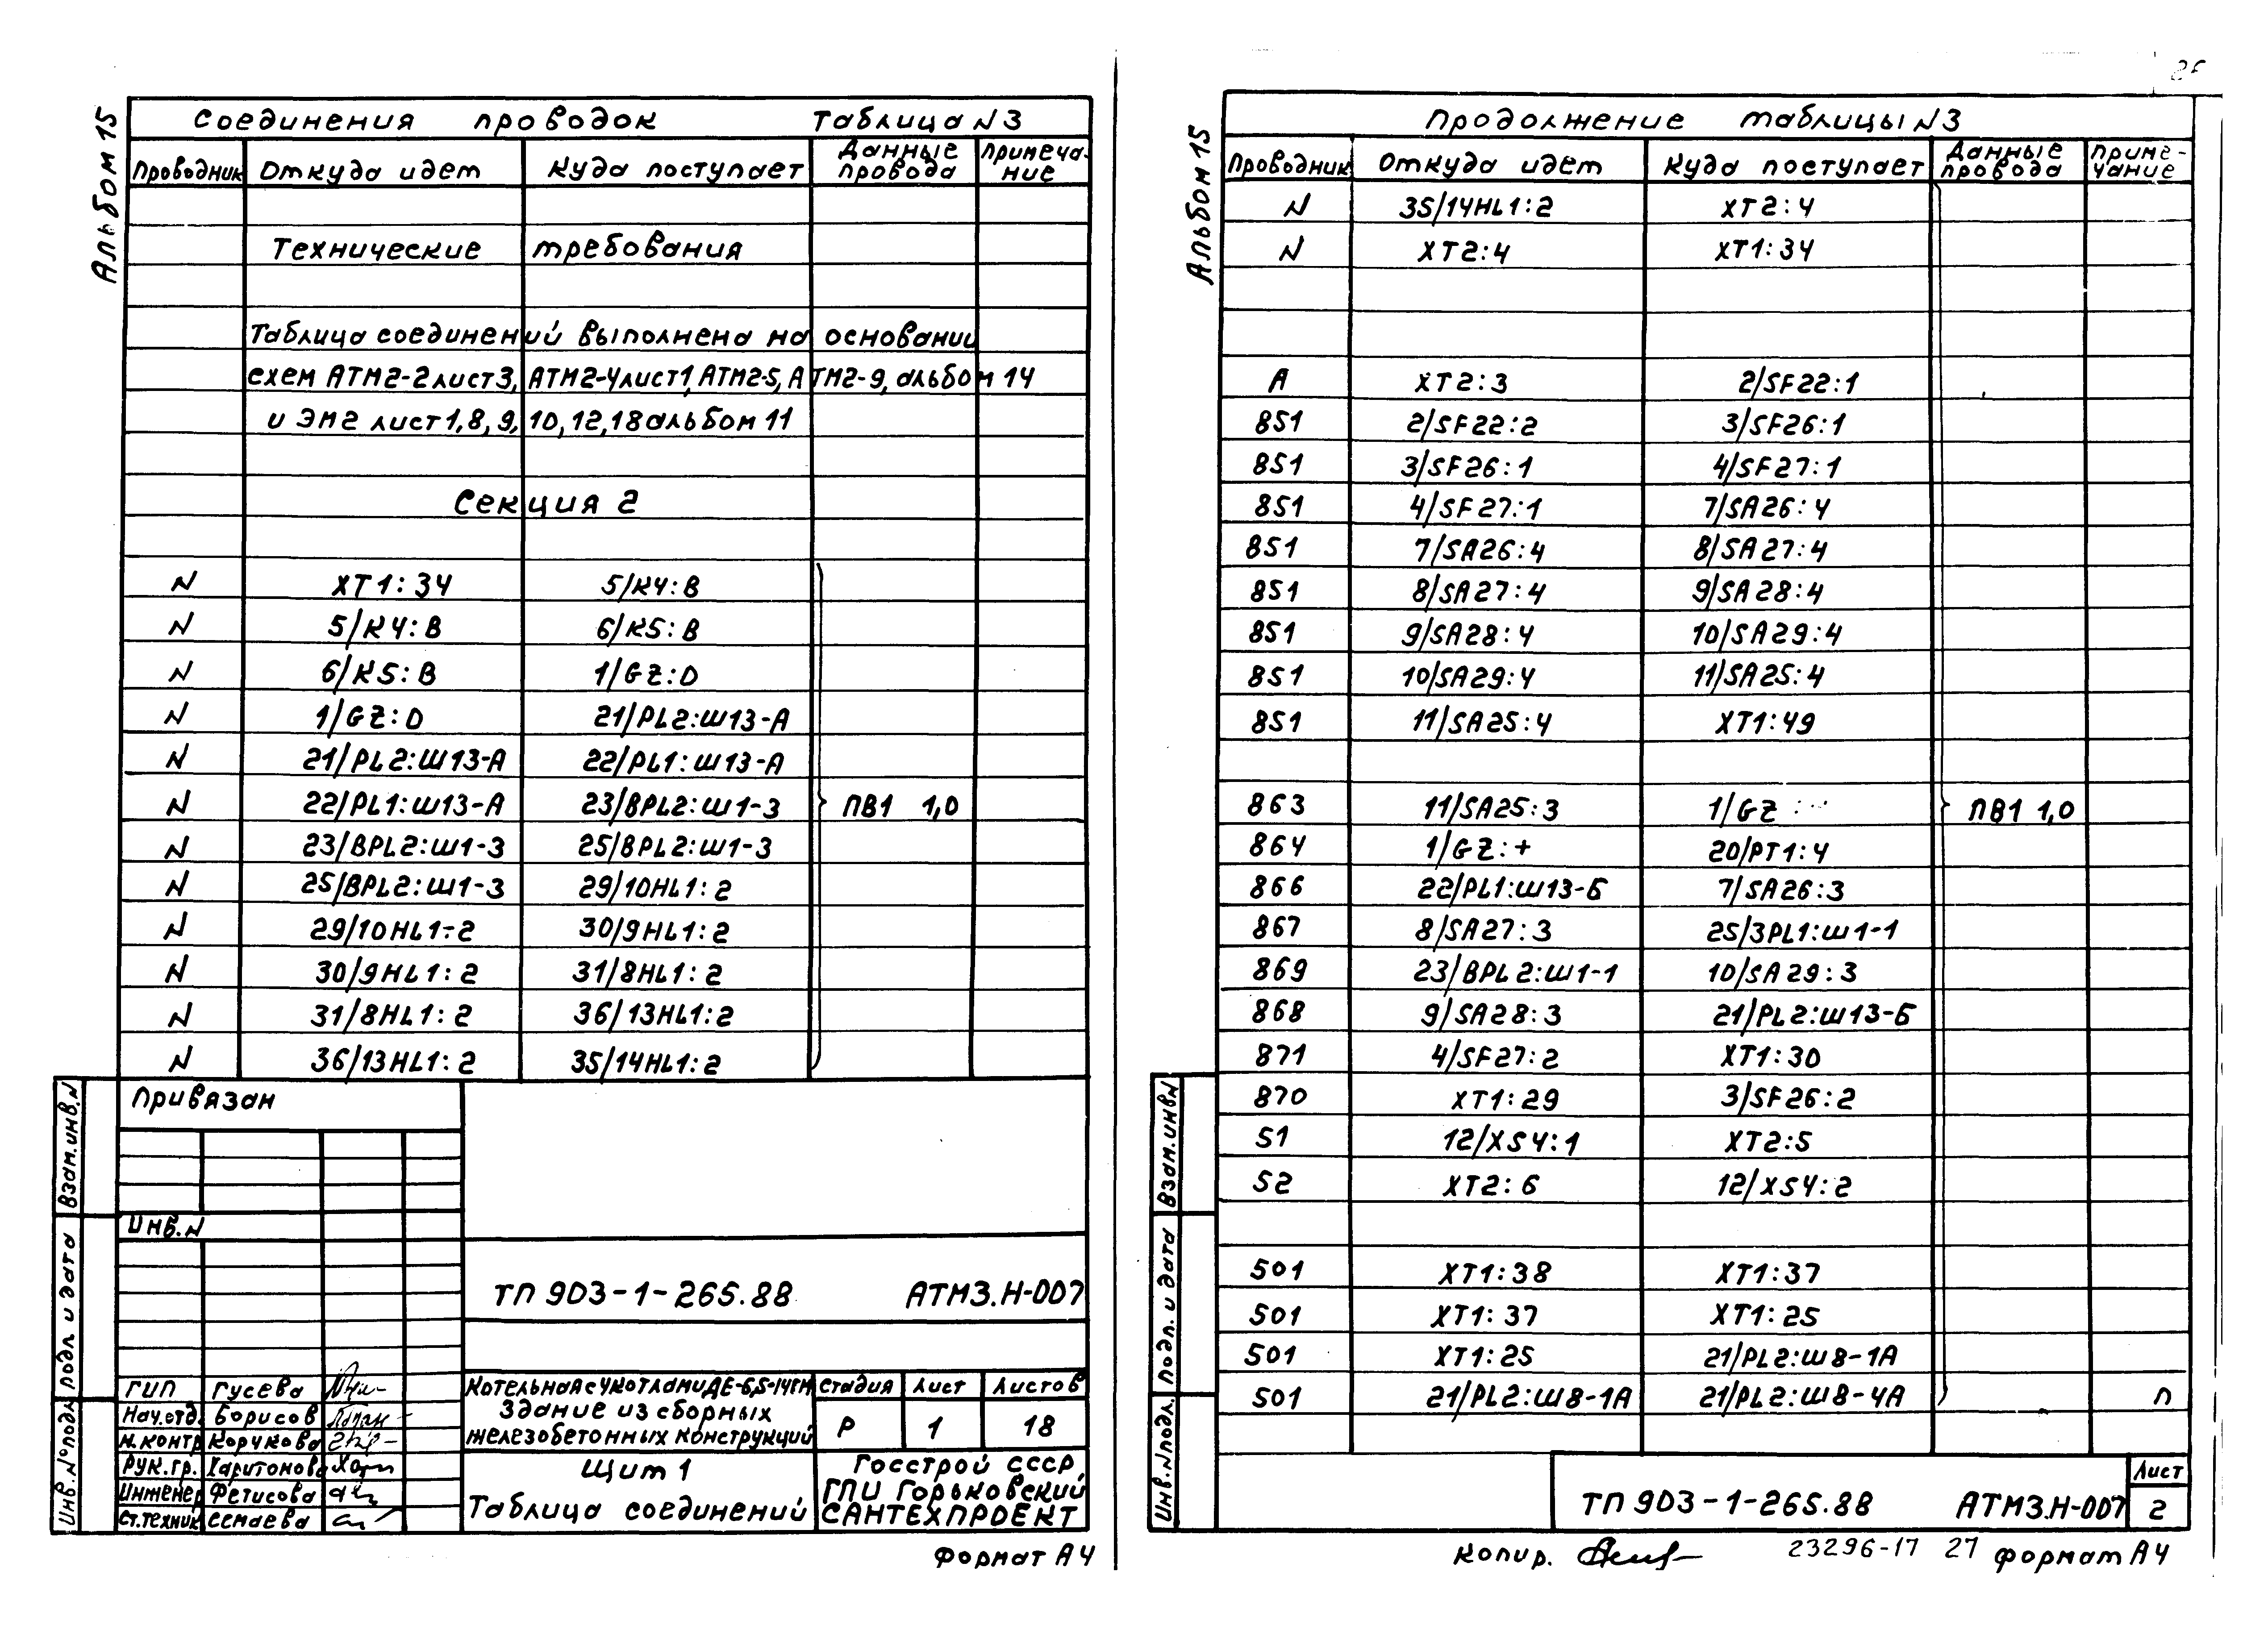 Альбом 15
Соединения проводок Таблица N3
Проводник Откуда идет Куда поступает Данные провода Примеча-ние
Технические требования
Таблица соединений выполнена на основании
схем АТМ2-2 лист 3, АТМ2-4 лист 1, АТМ2-5, АТМ2-9, альбом 14
и ЭМ2 лист 1, 8, 9, 10, 12, 18 альбом 11
Секция 2
N XT1:34 5/К4:В
N 5/К4:В 6/К5:В
N 6/К5:В 1/GZ:D
N 1/GZ:D 21/PL2:Ш13-А
N 21/PL2:Ш13-А 22/PL1:Ш13-А
N 22/PL1:Ш13-А 23/BPL2:Ш1-3 ПВ1 1,0
N 23/BPL2:Ш1-3 25/BPL2:Ш1-3
N 25/BPL2:Ш1-3 29/10HL1:2
N 29/10HL1-2 30/9HL1:2
N 30/9HL1:2 31/8HL1:2
N 31/8HL1:2 36/13HL1:2
N 36/13HL1:2 35/14HL1:2
Привязан
Инв.N
ТП 903-1-265.88 АТМ3.Н-007
ГИП Гусева
Нач.отд. Борисов
Н.контр Корчкова
Рук.гр. Харитонова
Инженер Фетисова
Ст.техник Семаева
Котельная с 4 котлами ДЕ-6,5-14ГМ
Здание из сборных
железобетонных конструкций
Стадия Лист Листов
Р 1 18
Щит 1
Таблица соединений
Госстрой СССР
ГПИ Горьковский
САНТЕХПРОЕКТ
Взам.инв.N
Подл. и дата
Инв.N°подл
Формат А4
Альбом 15
Продолжение таблицы N3
Проводник Откуда идет Куда поступает Данные провода Приме-чание
N 35/14HL1:2 XT2:4
N XT2:4 XT1:34
А XT2:3 2/SF22:1
851 2/SF22:2 3/SF26:1
851 3/SF26:1 4/SF27:1
851 4/SF27:1 7/SA26:4
851 7/SA26:4 8/SA27:4
851 8/SA27:4 9/SA28:4
851 9/SA28:4 10/SA29:4
851 10/SA29:4 11/SA25:4
851 11/SA25:4 XT1:49
863 11/SA25:3 1/GZ : ПВ1 1,0
864 1/GZ:+ 20/PT1:4
866 22/PL1:Ш13-Б 7/SA26:3
867 8/SA27:3 25/3PL1:Ш1-1
869 23/BPL2:Ш1-1 10/SA29:3
868 9/SA28:3 21/PL2:Ш13-Б
871 4/SF27:2 XT1:30
870 XT1:29 3/SF26:2
51 12/XS4:1 XT2:5
52 XT2:6 12/XS4:2
501 XT1:38 XT1:37
501 XT1:37 XT1:25
501 XT1:25 21/PL2:Ш8-1А
501 21/PL2:Ш8-1А 21/PL2:Ш8-4А п
Взам.инв.N
Подп. и дата
Инв.Nподл.
ТП 903-1-265.88 АТМ3.Н-007
Лист
2
Копир. 23296-17 27 Формат А4